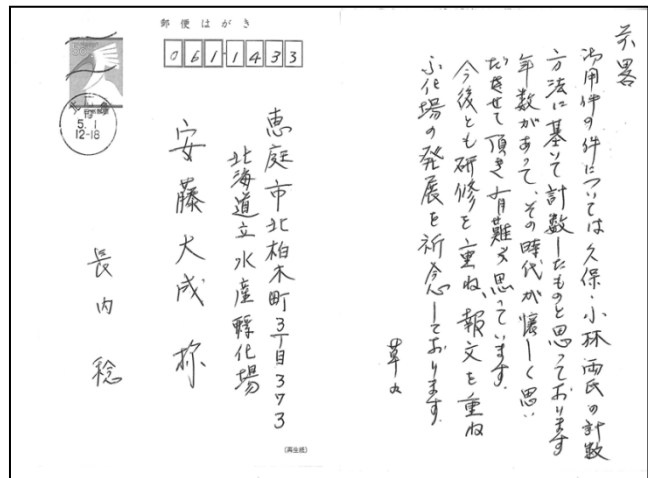 郵便はがき
061-1433
50
5.1
12-18
恵庭市北柏木町3丁目373
北海道立水産孵化場
安藤大成 様
長内 稔
(再生紙)
前略
御用件の件については久保・小林両氏の計数
方法に基いて計数したものと思っております
年数があって、その時代が懐しく思い
ださせて頂き有難う思っています。
今後とも研修を重ね、報文を重ね
ふ化場の発展を祈念しております。
草々